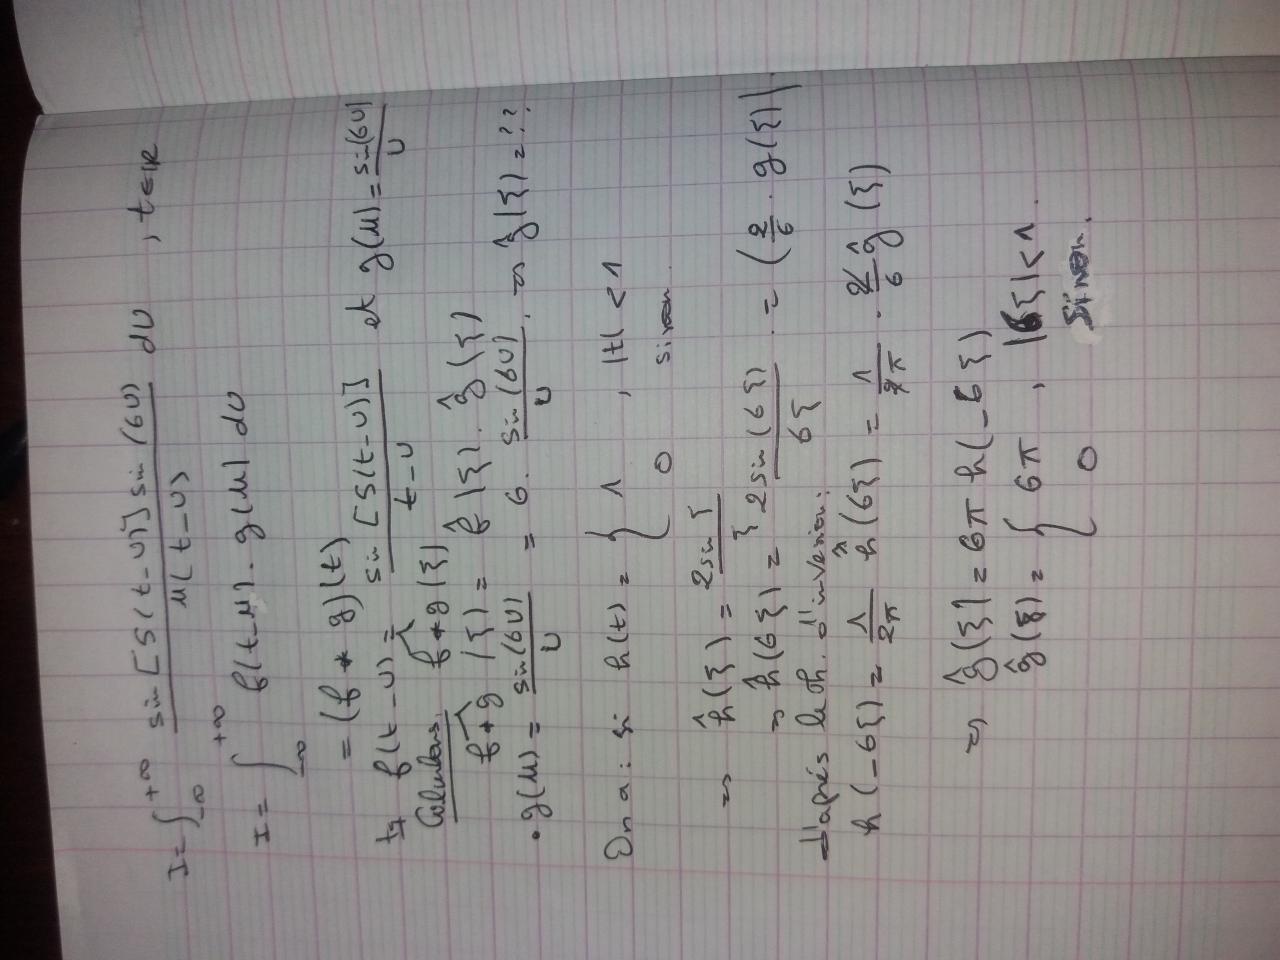 I = ∫_{-∞}^{+∞} sin[5(t-u)] sin(6u) / u(t-u) du , t∈ℝ
I = ∫_{-∞}^{+∞} f(t-u). g(u) du
= (f * g)(t)
f(t-u) = sin[5(t-u)] / t-u et g(u) = sin(6u) / u
Calculons f*g^(ξ)
f*g^(ξ) = f̂(ξ). ĝ(ξ)
• g(u) = sin(6u)/u = 6. sin(6u)/u. ⇒ ĝ(ξ) = ??.
On a: si h(t) = { 1 , |t| < 1
0 sinon.
⇒ ĥ(ξ) = 2sin ξ / ξ
⇒ ĥ(6ξ) = 2sin(6ξ) / 6ξ . = (2/6 . g(ξ))
d'après le th. d'inversion:
h(-6ξ) = 1/2π ĥ^(6ξ) = 1/2π . 2/6 ĝ(ξ)
⇒ ĝ(ξ) = 6π h(-6ξ)
ĝ(ξ) = { 6π , |6ξ| < 1.
0 sinon.